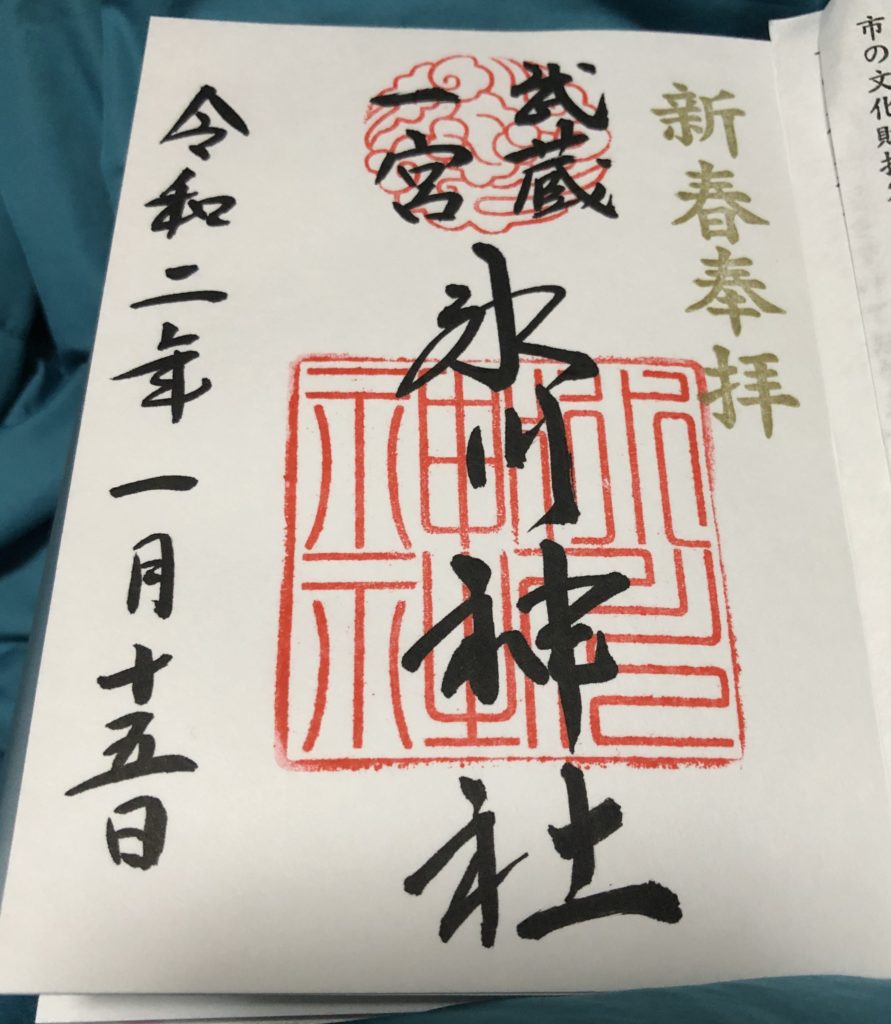 市の文化財
新春奉拝
武蔵
一宮
氷川神社
令和二年一月十五日